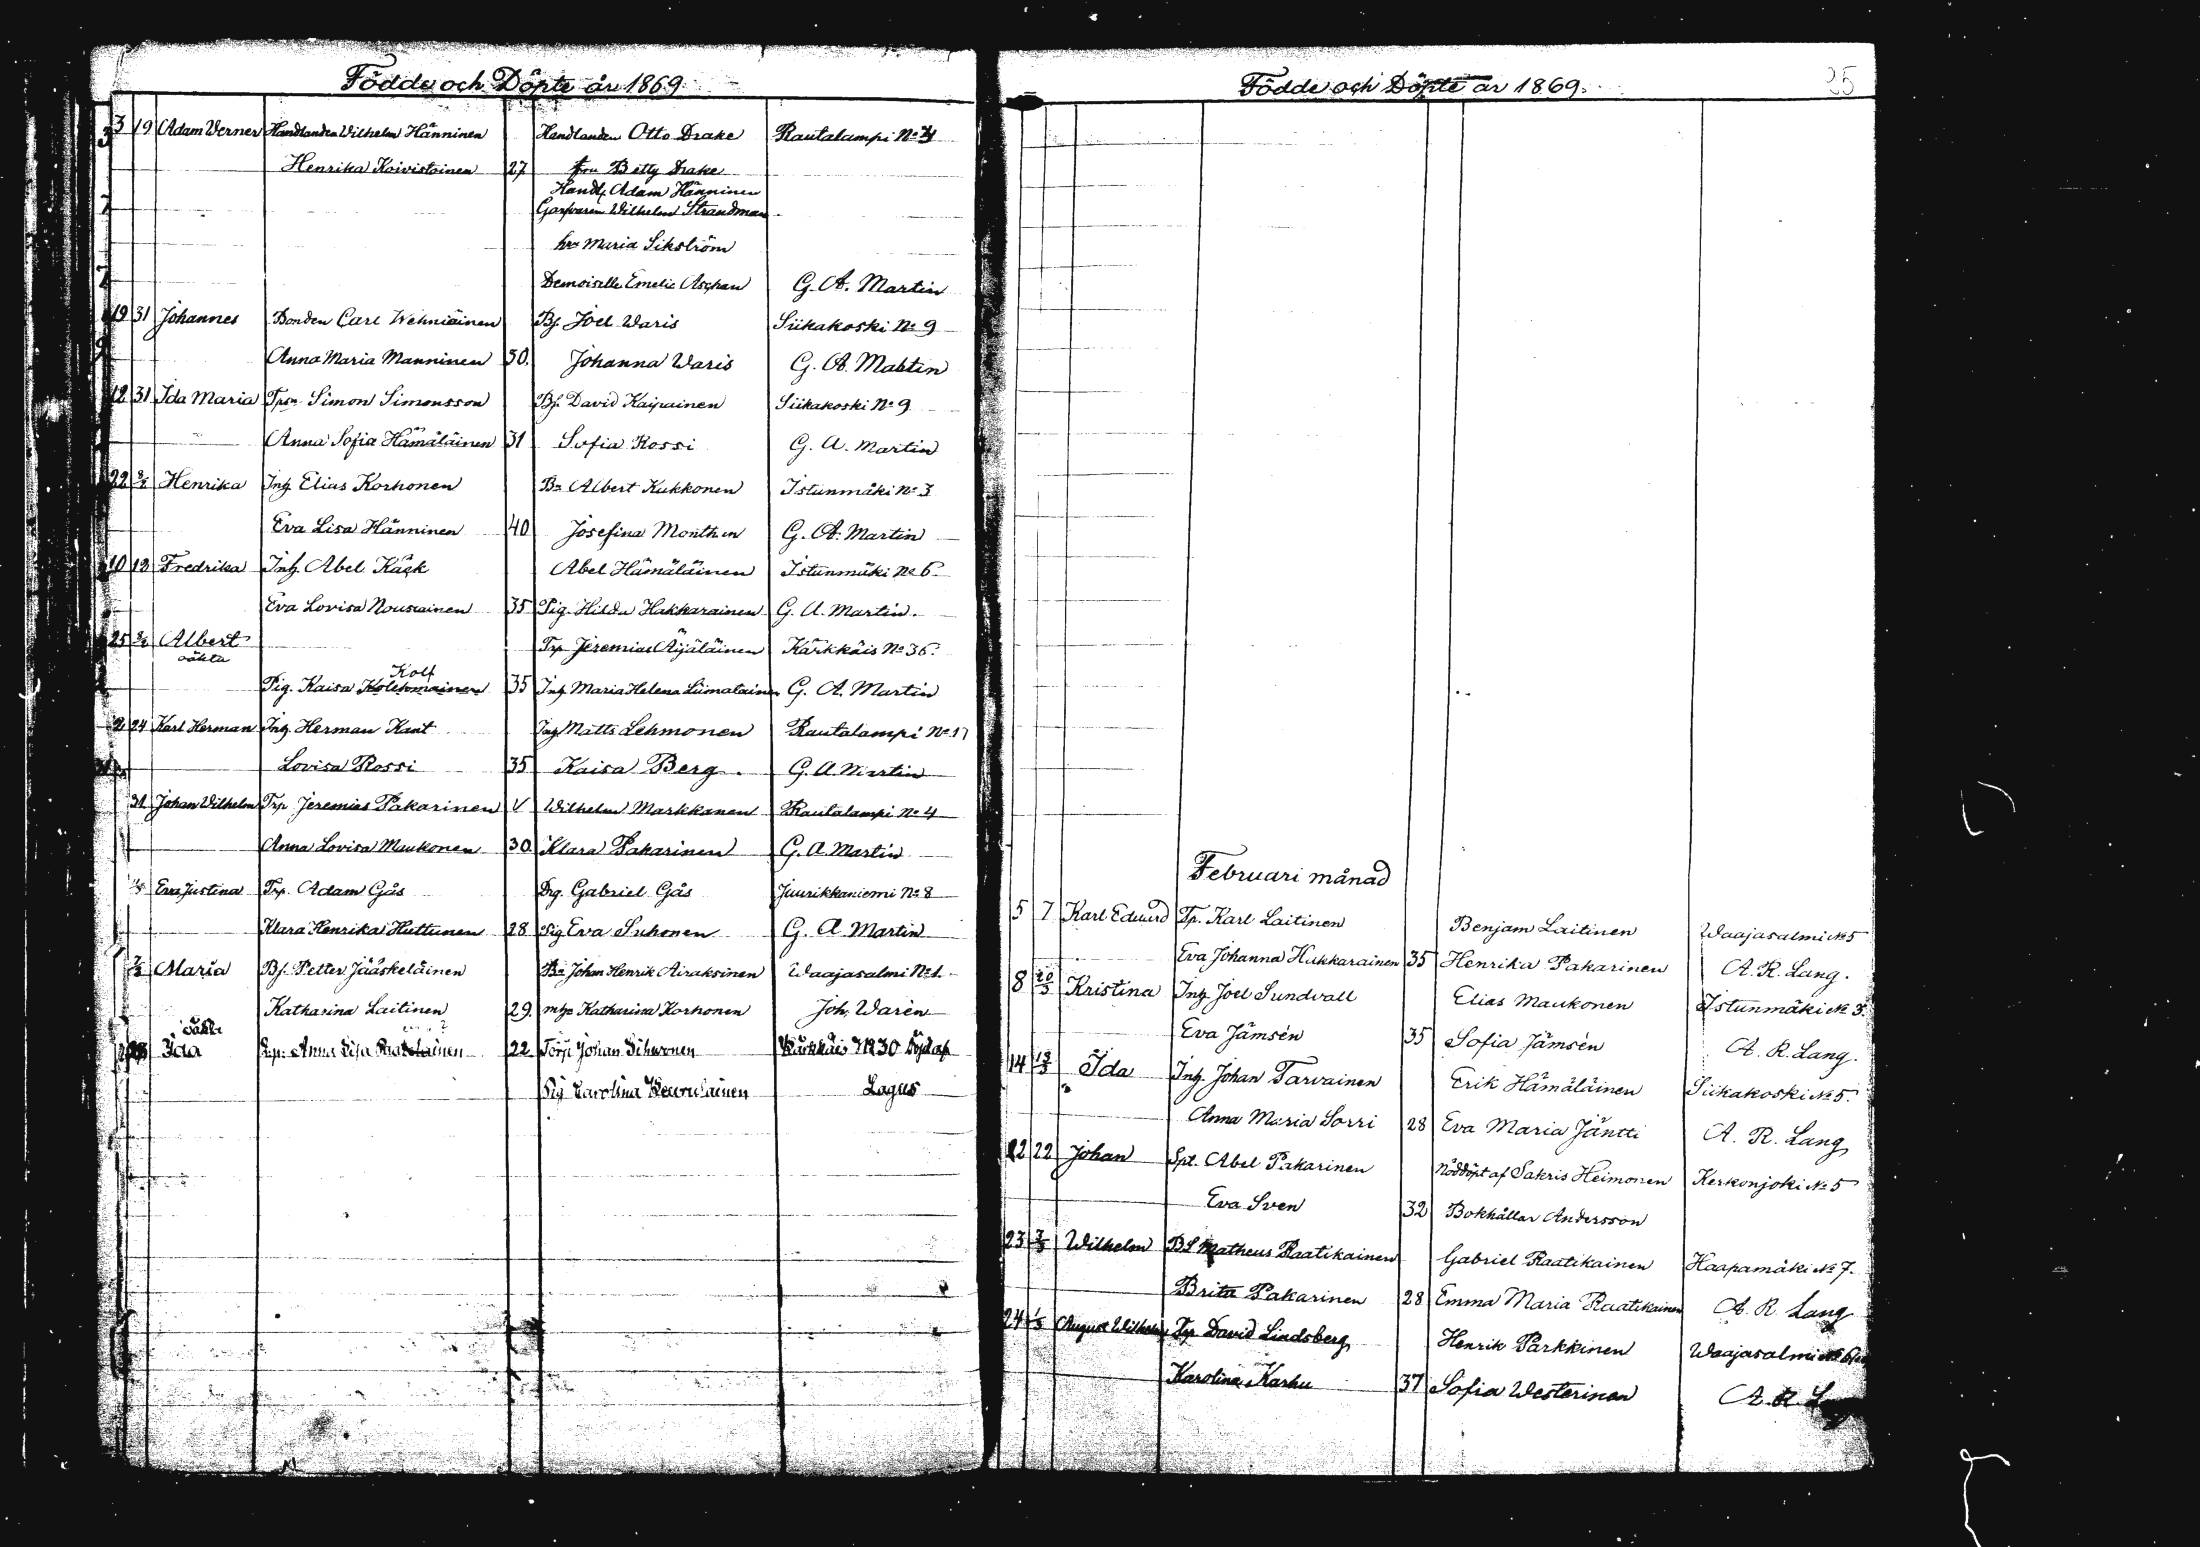 Födde och Döpte år 1869
3 19 Adam Werner Handlanden Wilhelm Hänninen Handlanden Otto Drake Rautalampi No
Henrika Koivistoinen 27 fru Betty Drake
Handl Adam Hänninen
Garfvaren Wilhelm Strandman
fru Maria Sikström
Demoiselle Emelie Aschan G. A. Martin
19 31 Johannes Bonden Carl Wehniäinen Bj. Joel Waris Siikakoski No 9
Anna Maria Manninen 30. Johanna Waris G. A. Martin
12 31 Ida Maria Tpsn Simon Simonsson Bj. David Kaipainen Siikakoski No 9
Anna Sofia Hämäläinen 31 Sofia Rossi G. A. Martin
22 Henrika Inh. Elias Korhonen Bn Albert Kukkonen Istunmäki No 3
Eva Lisa Hänninen 40 Josefina Monthen G. A. Martin
10 13 Fredrika Inh. Abel Käck Abel Hämäläinen Istunmäki No 6.
Eva Lovisa Nousiainen 35 Pig. Hilda Hakkarainen G. A. Martin.
25 Albert Trp Jeremias Äijäläinen Kärkkäis No 36.
oäkta Kolf
Pig. Kaisa Kolehmainen 35 Inh. Maria Helena Liimatainen G. A. Martin
24 Karl Herman Inh. Herman Kant Inh. Matts Lehmonen Rautalampi No 17
Lovisa Rossi 35 Kaisa Berg. G. A. Martin
31 Johan Wilhelm Trp Jeremias Pakarinen V Wilhelm Markkanen Rautalampi No 4
Anna Lovisa Maukonen 30 Klara Pakarinen G. A. Martin
Eva Justina Trp. Adam Gås Drg. Gabriel Gås Juurikkaniemi No 8
Klara Henrika Huttunen 28 Pig Eva Suhonen G. A. Martin
Maria Bj. Petter Jääskeläinen Bn Johan Henrik Airaksinen Waajasalmi No 1.
Katharina Laitinen 29. Katharina Korhonen Joh. Warén
oäkta
Ida Anna Lisa 22 Johan Sihvonen Kärkkäis No 30 Döpt af
Pig Carolina Lagus
Födde och Döpte år 1869. 25
Februari månad
5 7 Karl Eduard Tp. Karl Laitinen Benjam Laitinen Waajasalmi No 5
Eva Johanna Hukkarainen 35 Henrika Pakarinen A. R. Lang.
8 20/3 Kristina Inh Joel Sundvall Elias Maukonen Istunmäki No 3.
Eva Jämsén 35 Sofia Jämsén A. R. Lang.
14 Ida Inh. Johan Tarvainen Erik Hämäläinen Siikakoski No 5.
Anna Maria Sorri 28 Eva Maria Jäntti A. R. Lang
22 22 Johan Spt. Abel Pakarinen Nöddöpt af Sakris Heimonen Kerkonjoki No 5
Eva Sven 32 Bokhållar Andersson
23 Wilhelm BS Matheus Raatikainen Gabriel Raatikainen Haapamäki No 7.
Brita Pakarinen 28 Emma Maria Raatikainen A. R. Lang
24 August Wilhelm Trp David Lindsberg Henrik Parkkinen Waajasalmi No 6
Karolina Karhu 37 Sofia Westerinen A. R. Lang